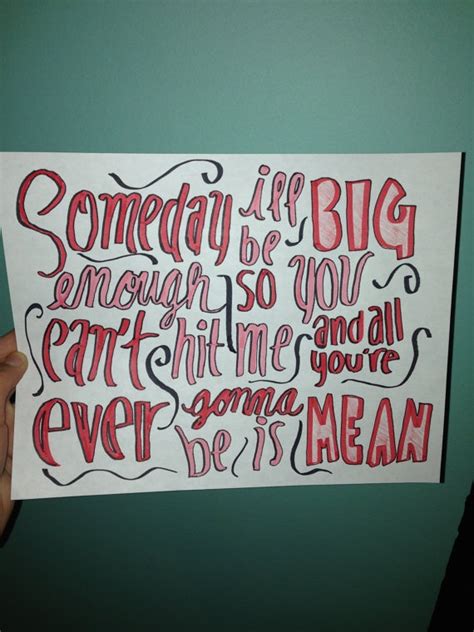 Someday ill be BIG
enough so you
can't hit me and all you're
ever gonna be is MEAN